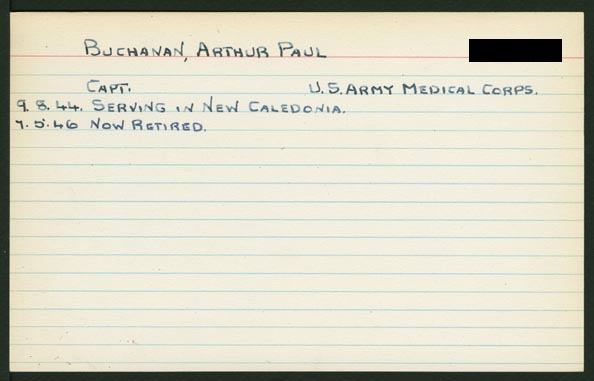 Buchanan, Arthur Paul
Capt. U.S. Army Medical Corps.
9.8.44. Serving in New Caledonia.
7.5.46 Now Retired.